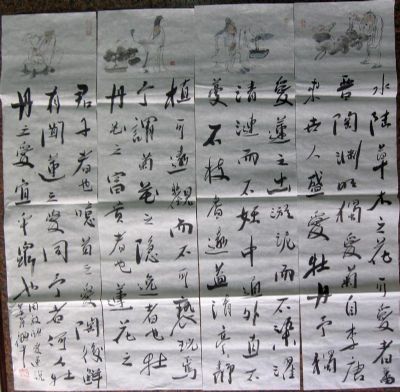 水陸草木之花可愛者甚蕃
晋陶渊明獨愛菊自李唐
来世人盛愛牡丹予獨
愛蓮之出淤泥而不染濯
清漣而不妖中通外直不
蔓不枝香遠益清亭亭静
植可遠觀而不可褻玩焉
予謂菊花之隐逸者也牡
丹花之富貴者也蓮花之
君子者也噫菊之愛陶後鮮
有聞蓮之愛同予者何人牡
丹之愛宜乎衆也